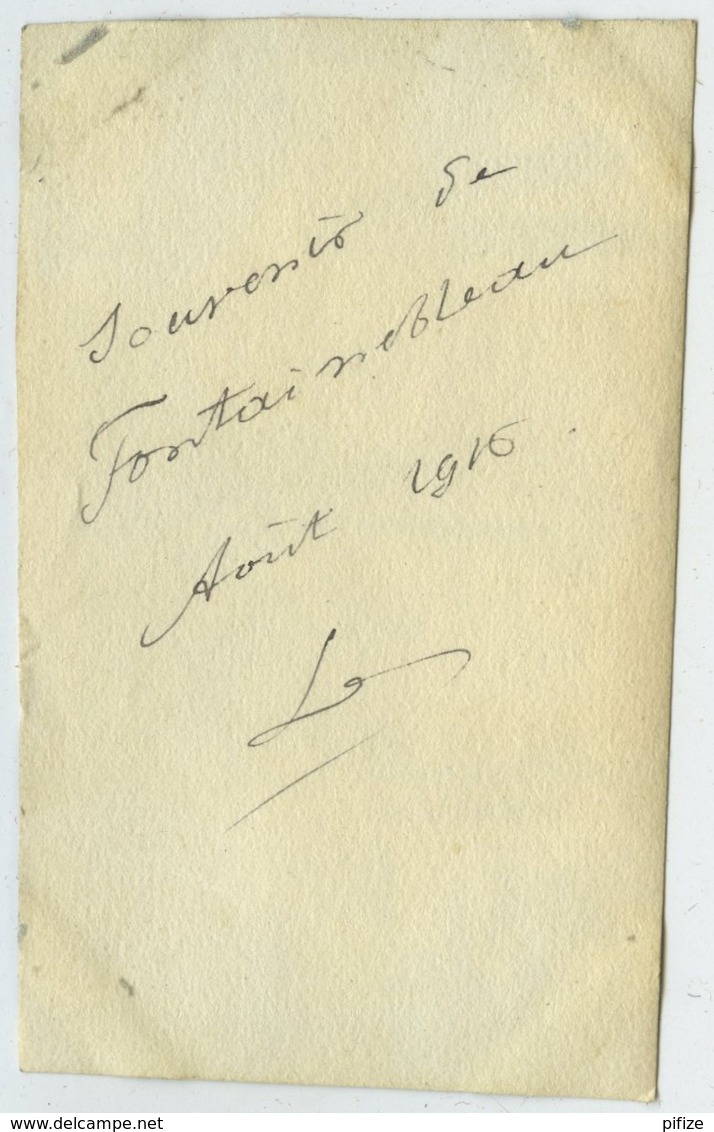 Souvenir de
Fontainebleau
Août 1916.
L
delcampe.net
pifize